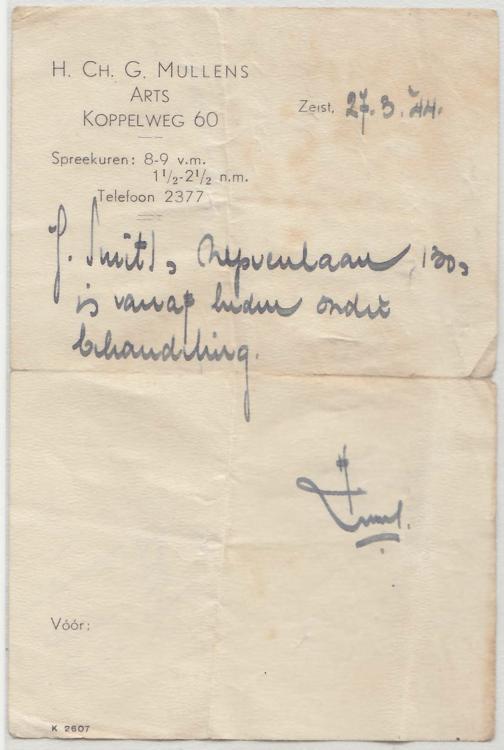 H. Ch. G. Mullens
Arts
Koppelweg 60
Zeist, 27.3.'44.
Spreekuren: 8-9 v.m.
1½-2½ n.m.
Telefoon 2377
J. Smits, 130,
is vanaf heden onder
behandeling.
Vóór:
K 2607